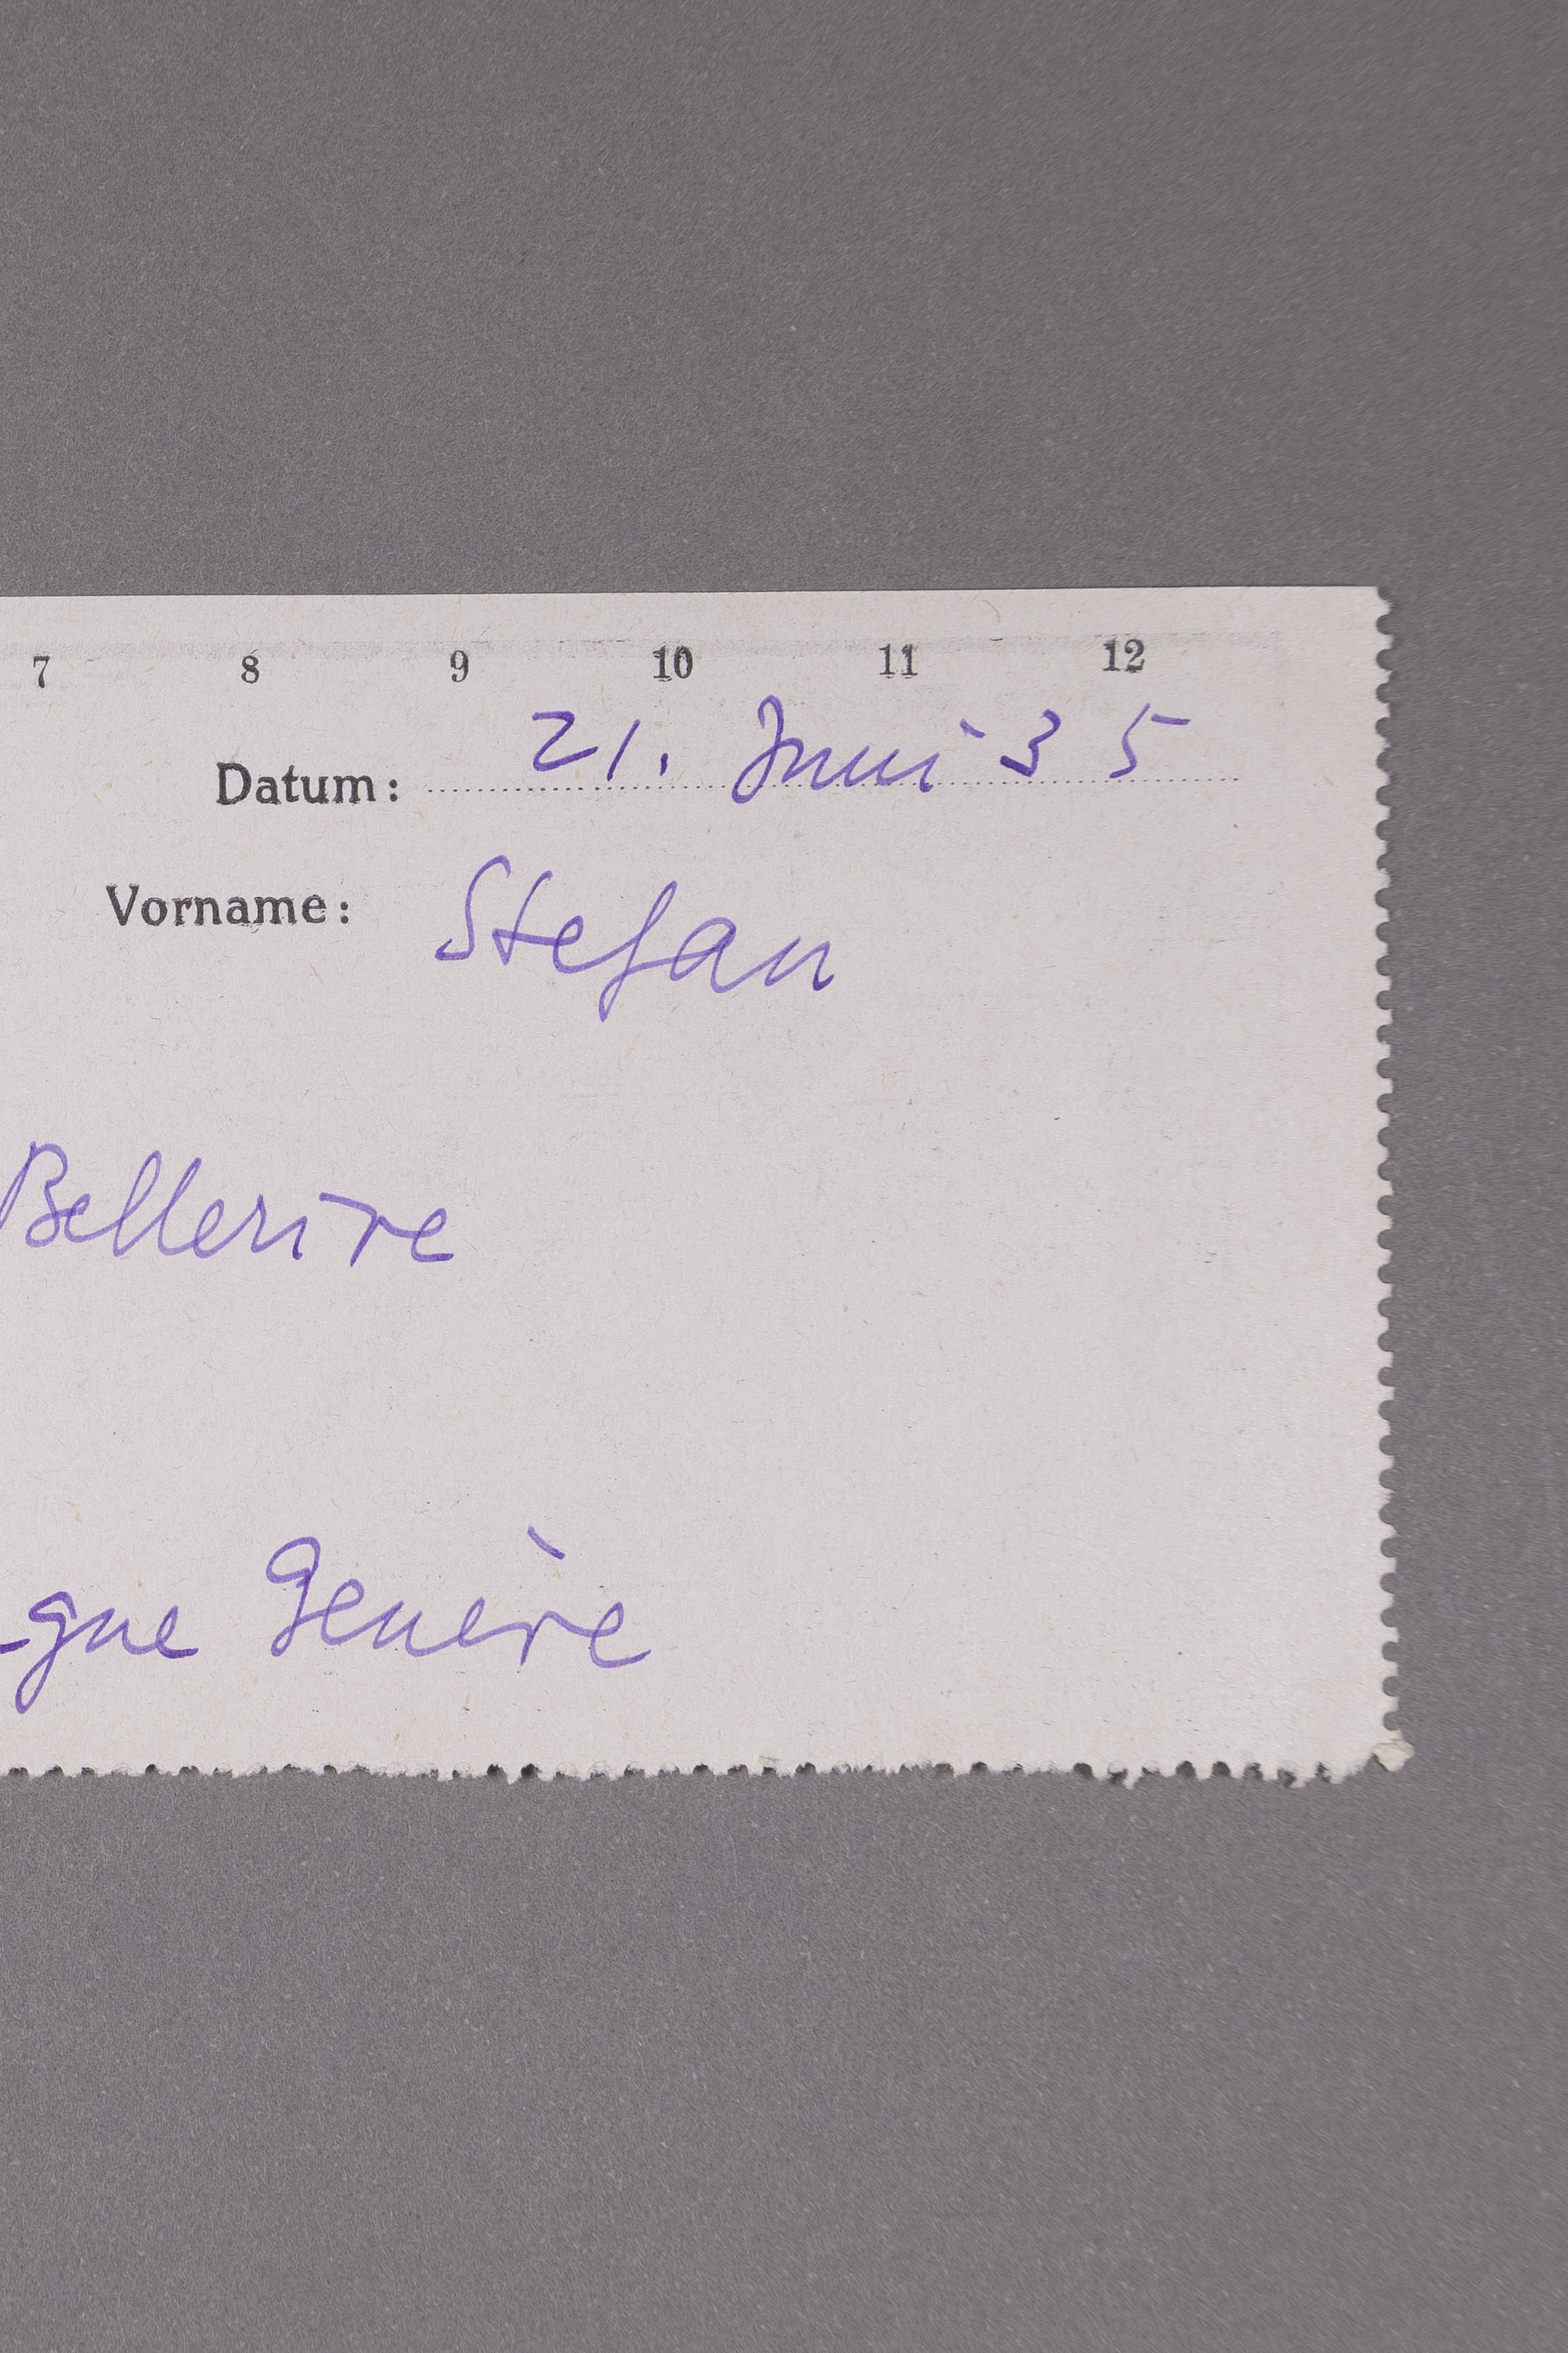 7 8 9 10 11 12
Datum: 21. Juni 35
Vorname: Stefan
Bellerive
gne Genève